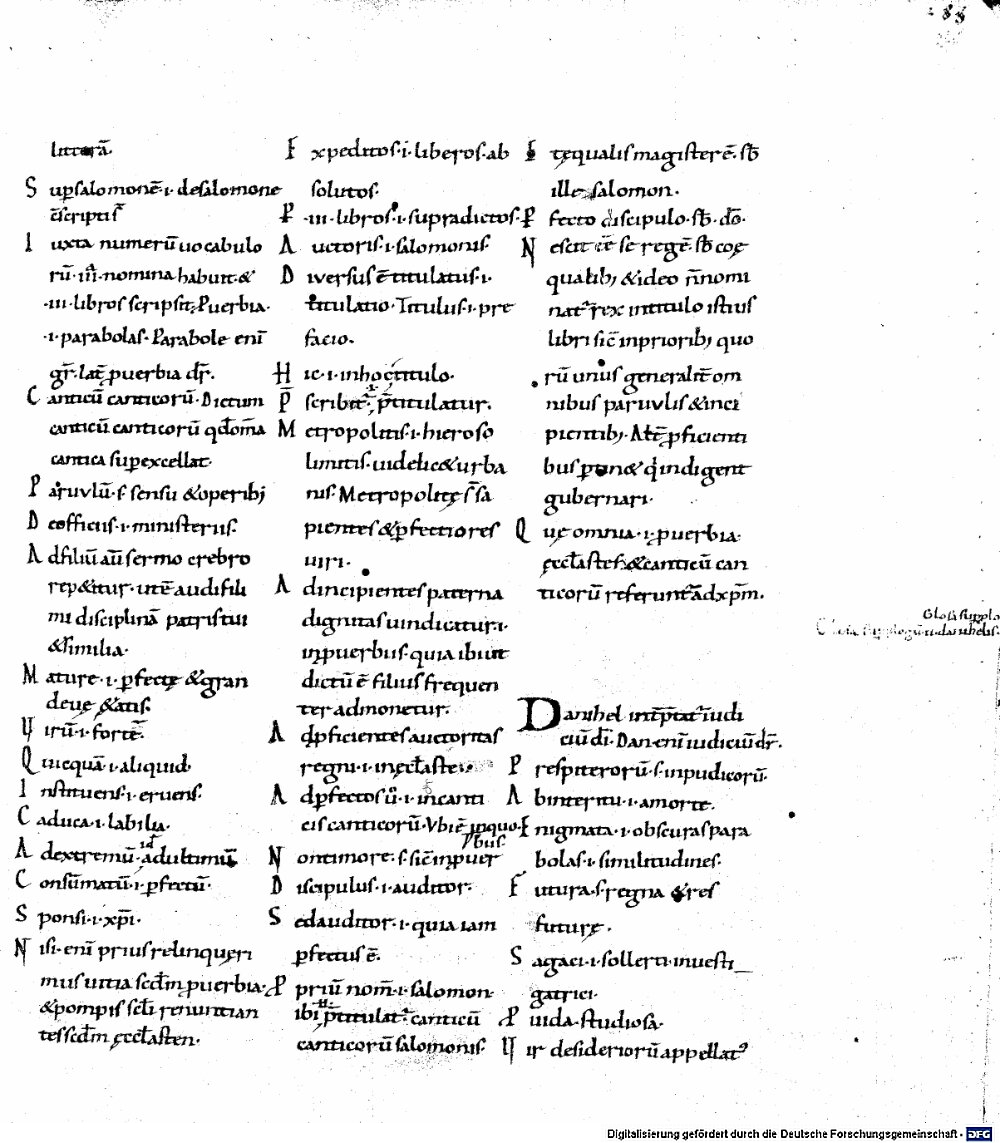 littera᷄.
S up̱salomone᷄·i· desalomone
e᷄scriptis
I uxta numeru᷄ uocabulo
ru᷄·iii·nomina habuit·&
·iii·libros scripsit; P̱uerbia·
·i·parabolas·Parabole eni᷄
gr̄·lat̄ p̱uerbia dr̄·
C anticu᷄ canticoru᷄·Dictum
canticu᷄ canticoru᷄ qd̄ om̄a
cantica sup̱excellat·
P aruulu᷄·s· sensu & operib;
D eofficiis·i·ministeriis·
A dfiliu᷄ au᷄ sermo crebro
rep&itur·ut e᷄ audi fili
mi disciplina᷄ patris tui
& similia·
M ature·i·p̱fectę & gran
deuę ętatis·
U iru᷄·i·forte᷄·
Q uicqua᷄·i·aliquid·
I nstituens·i·eruens·
C aduca·i·labilia·
A dextremu᷄·id adultimu᷄
C onsu᷄matu᷄·i·p̱fectu᷄·
S ponsi·i·xp̄i·
N isi·eni᷄ prius relinqueri
mus uitia scd̄m p̱uerbia·
& pompis scl̄i renuntian
tes scd̄m ęccl̄asten·
E xpeditos·i·liberos·ab
solutos·
P ·iii·libros·i·supradictos·
A uctoris·i·salomonis·
D iuersus e᷄ titulatus·i·
titulatio·Titulus·i·pre
facio·
H ic·i·inhoc titulo·
P scribit᷑·i·p̄titulatur·
M etropolitis·i·hieroso
limitis·uidelic& urba
nis·Metropolitę s᷄ sa
pientes & p̱fectiores
uiri·
A dincipientes paterna
dignitas uindicatur·i·
inp̱uerbiis·quia ibi
dictu᷄ e᷄ filius frequen
ter admonetur·
A dp̱ficientes auctoritas
regni·i·inęccl̄aste·
A dp̱fectos u᷄·i·incanti
cis canticoru᷄·Ubi e᷄ inquo·
N ontimore·s·sic᷄ inp̱uer
bus·
D iscipulus·i·auditor·
S edauditor·i·quia iam
p̱fectus e᷄·
P priu᷄ nom̄·i·salomon·
ibi p̄titulat᷑ canticu᷄
canticoru᷄ salomonis·
E tęqualis magister e᷄·sb̄
ille salomon·
P fecto discipulo·sb̄·do᷄·
N escit e᷄e se rege᷄ sb̄ coę
qualib; & ideo n̄ nomi
nat᷑ rex intitulo istius
libri sic᷄ inpriorib; quo
ru᷄ unus generalit᷄ om
nibus paruulis & inci
pientib;·Alt᷄ p̱ficienti
bus p̱on& qi indigent
gubernari·
Q uę omnia·i·p̱uerbia·
ęccl̄astes·& canticu᷄ can
ticoru᷄ referunt᷑ adxp̄m·
Glosa suppło
D anihel int̄p̄tat᷑ iudi
ciu᷄ di᷄·Dan·eni᷄ iudiciu᷄ dr̄·
P respiteroru᷄·s·inpudicoru᷄·
A binteritu·i·amorte·
E nigmata·i·obscuras para
bolas·i·similitudines·
F utura·s·regna & res
futurę·
S agaci·i·sollerti·inuesti_
gatrici·
P uida·studiosa·
U ir desiderioru᷄ appellat᷑
Digitalisierung gefördert durch die Deutsche Forschungsgemeinschaft - DFG